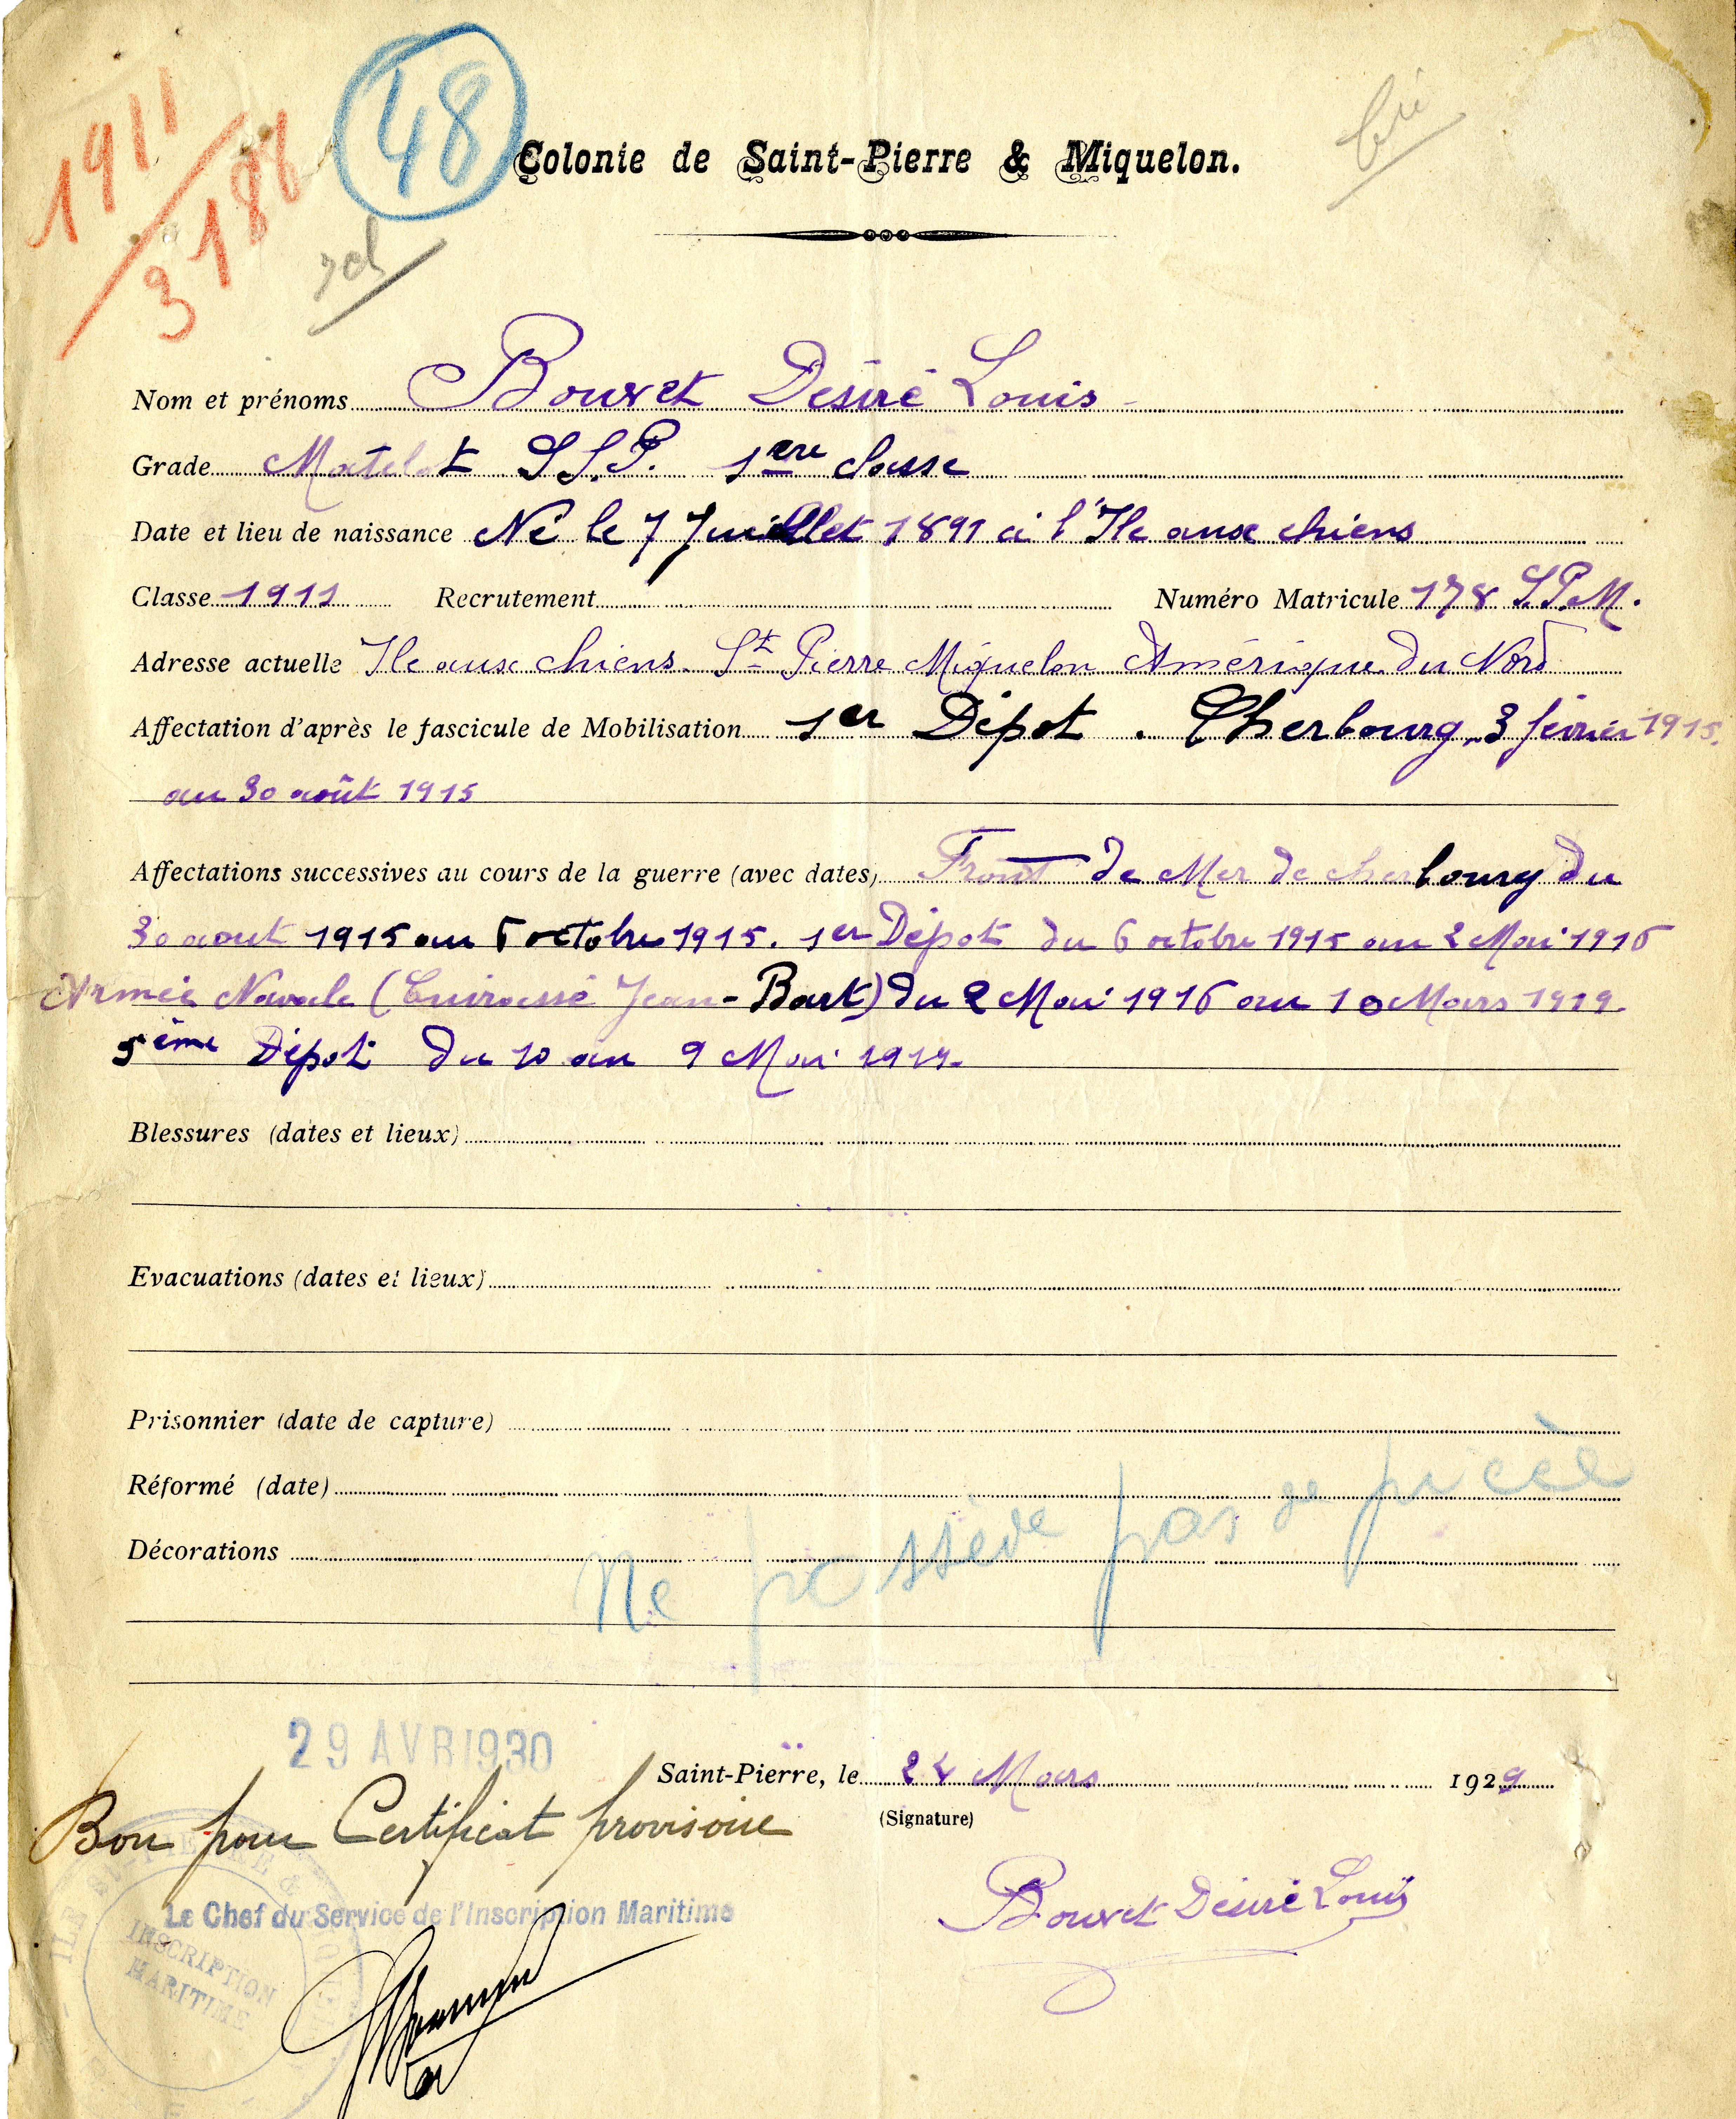 1911
3186
48
Colonie de Saint-Pierre & Miquelon.
Nom et prénoms Bouvet Désiré Louis
Grade Matelot S.S.P. 1ere classe
Date et lieu de naissance Né le 7 Juillet 1891 à l'Ile aux chiens
Classe 1911 Recrutement Numéro Matricule 178 S.P.M.
Adresse actuelle Ile aux chiens. St Pierre Miquelon Amérique du Nord
Affectation d'après le fascicule de Mobilisation 1er Dépot. Cherbourg, 3 février 1915
au 30 août 1915
Affectations successives au cours de la guerre (avec dates) Front de Mer de cherbourg du
30 aout 1915 au octobre 1915. 1er Dépot du 6 octobre 1915 au 2 Mai 1916
Armée Navale (Cuirassé Jean-Bart) du 2 Mai 1916 au 10 Mars 1919.
5ème Dépot du 10 au 9 Mai 1919.
Blessures (dates et lieux)
Evacuations (dates et lieux)
Prisonnier (date de capture)
Réformé (date)
Décorations
Ne possède pas de pièce
29 AVR 1930
Saint-Pierre, le 24 Mars 1929
Bon pour Certificat provisoire
(Signature)
Le Chef du Service de l'Inscription Maritime
Bouvet Désiré Louis
INSCRIPTION
MARITIME